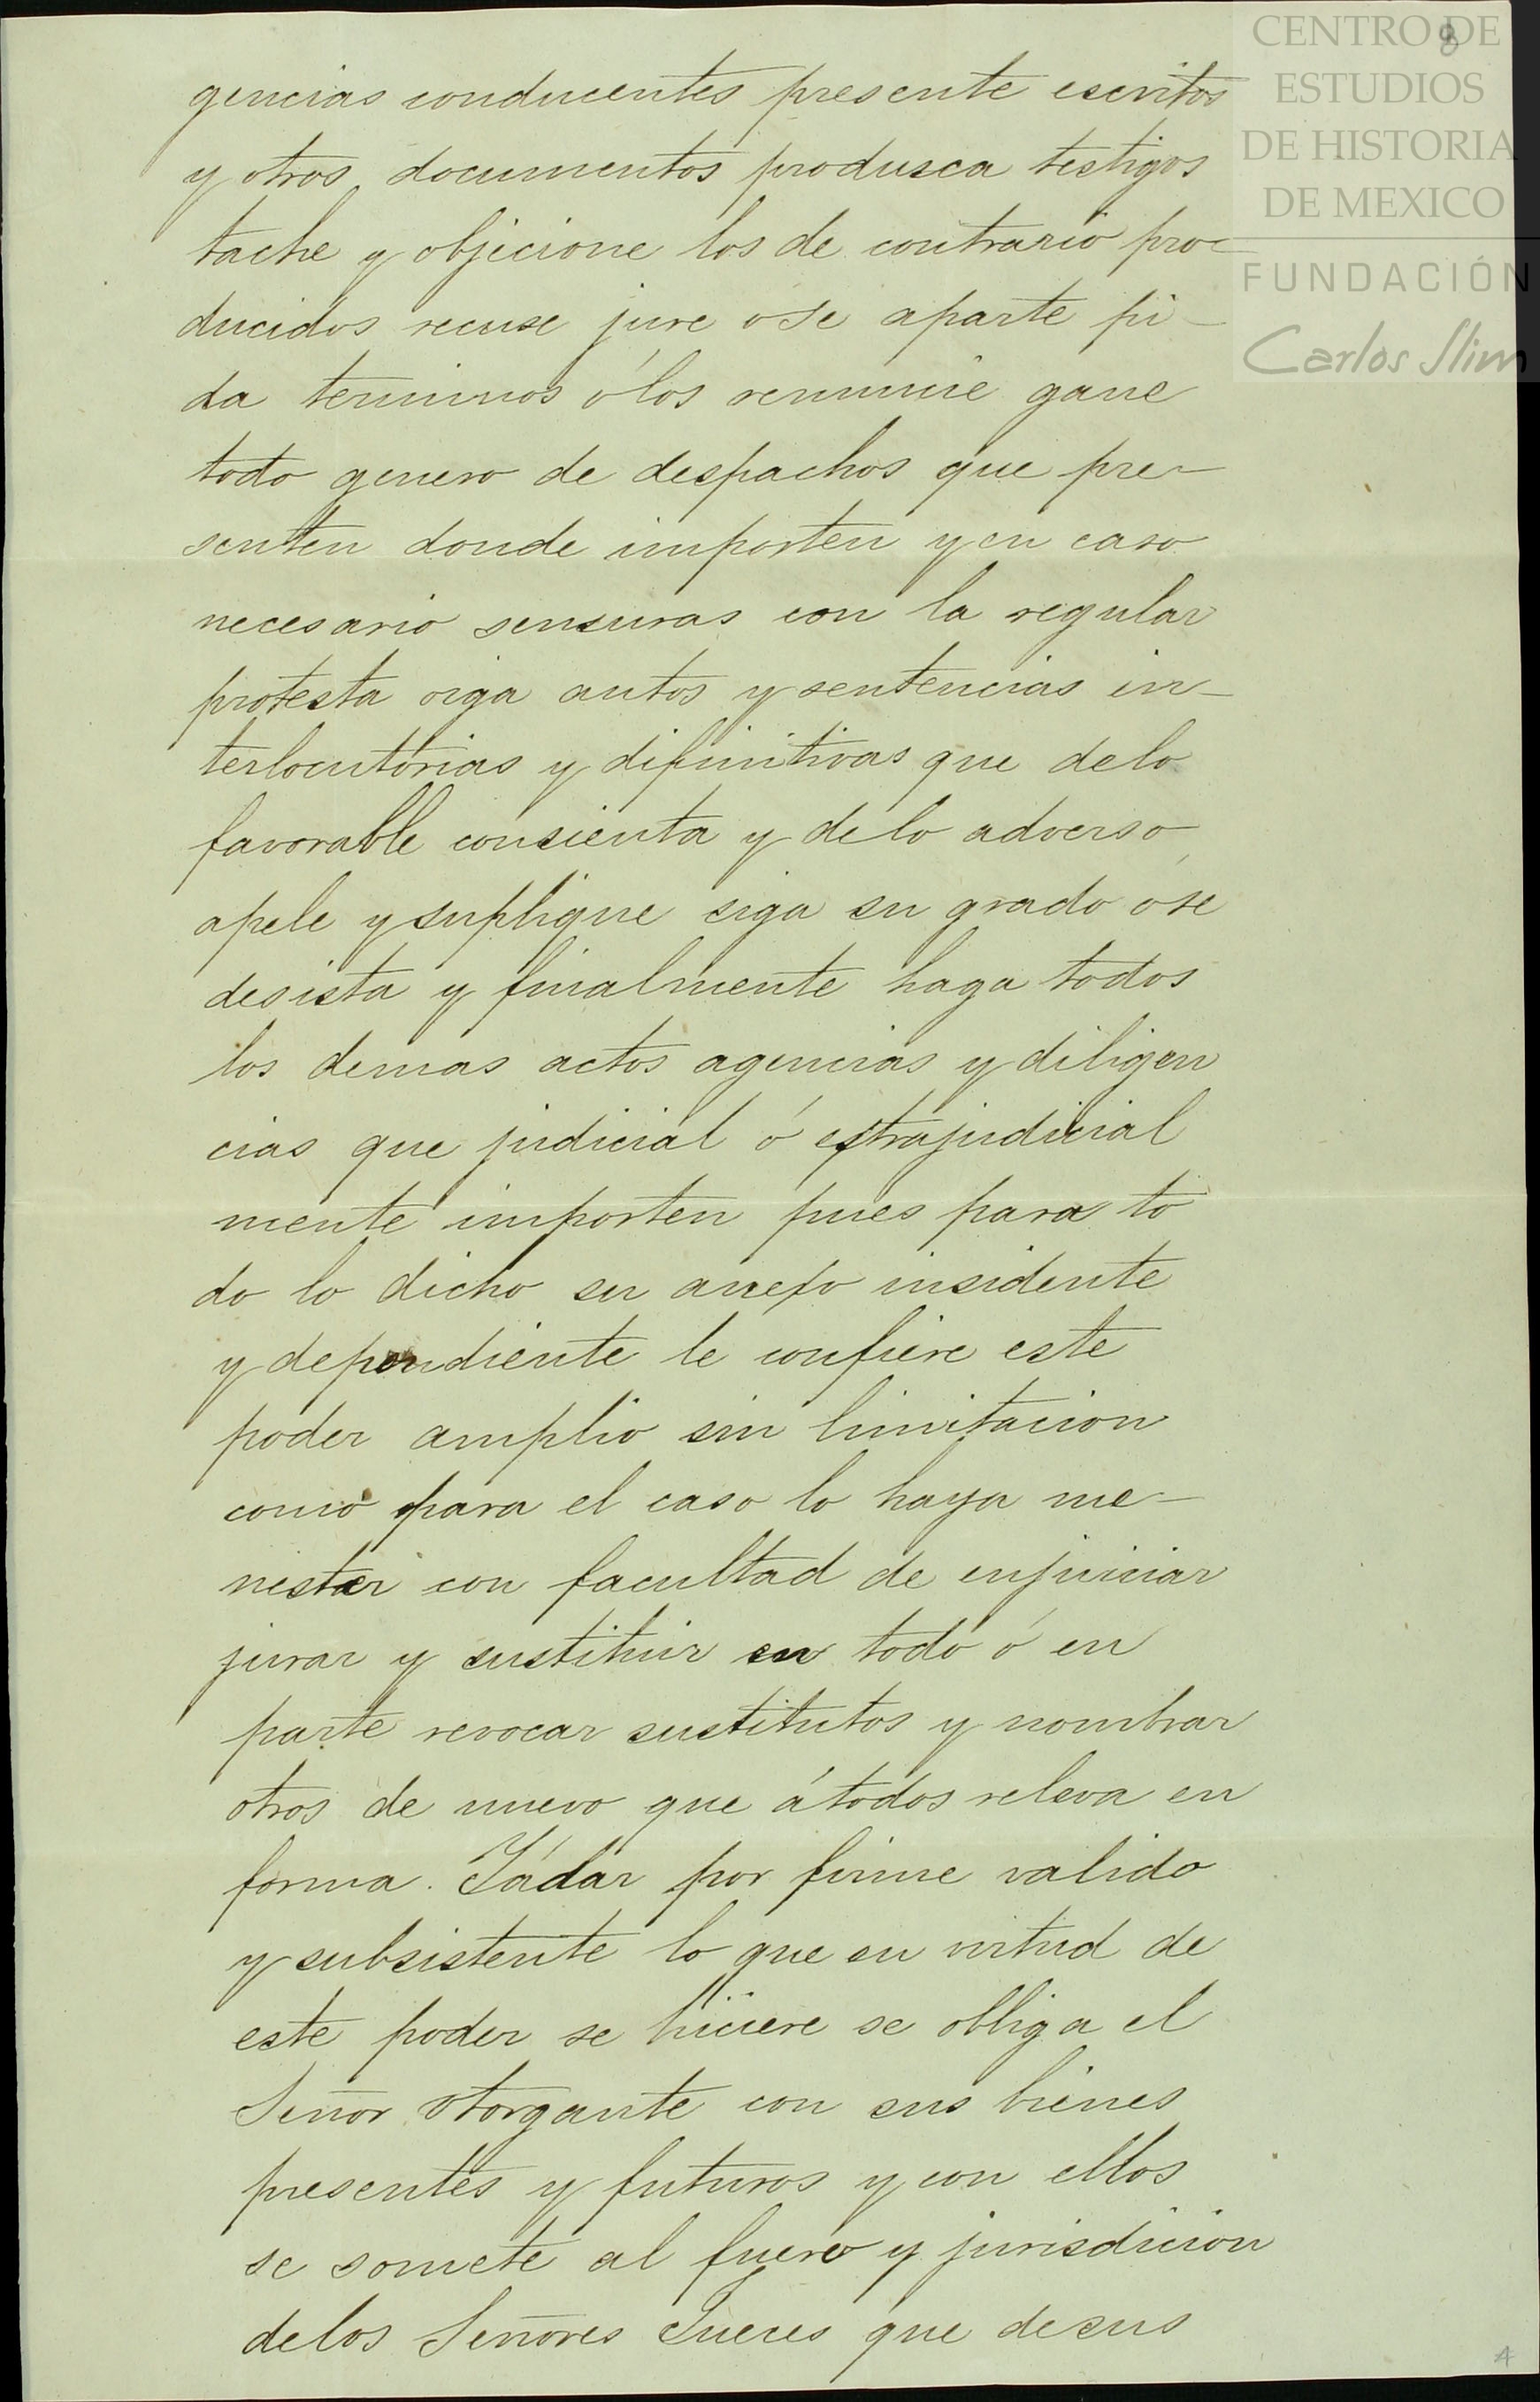 CENTRO DE
ESTUDIOS
DE HISTORIA
DE MEXICO
FUNDACIÓN
Carlos Slim
8
gencias conducentes presente escritos
y otros documentos produsca testigos
tache y objecione los de contrario pro-
ducidos recuse jure ó se aparte pi-
da terminos ó los renuncie gane
todo genero de despachos que pre-
senten donde importen y en caso
necesario sensuras con la regular
protesta oiga autos y sentencias in-
terlocutorias y difinitivas que de lo
favorable consienta y de lo adverso
apele y suplique siga su grado ó se
desista y finalmente haga todos
los demas actos agencias y diligen
cias que judicial ó extrajudicial
mente importen pues para to
do lo dicho su anexo insidente
y dependiente le confiere este
poder amplio sin limitacion
como para el caso lo haya me-
nester con facultad de enjuiciar
jurar y sustituir en todo ó en
parte revocar sustitutos y nombrar
otros de nuevo que á todos releva en
forma. Y á dar por firme valido
y subsistente lo que en virtud de
este poder se hiciere se obliga el
Señor otorgante con sus bienes
presentes y futuros y con ellos
se somete al fuero y jurisdicion
de los Señores Jueces que de sus
4